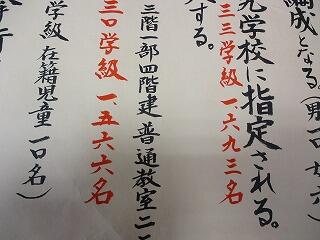 編成となる。(男一〇女六)
光学校に指定される。
三三学級 一、六九三名
する。
三階一部四階建 普通教室二二
三〇学級 一、五六六名
学級 在籍児童 一〇名)